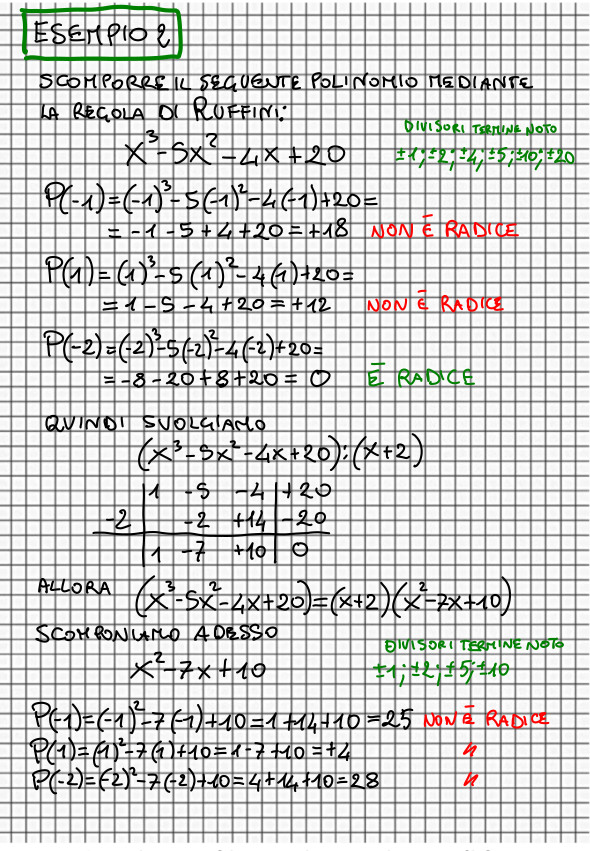 ESEMPIO 2
SCOMPORRE IL SEGUENTE POLINOMIO MEDIANTE
LA REGOLA DI RUFFINI:
DIVISORI TERMINE NOTO
x³-5x²-4x+20
±1;±2;±4;±5;±10;±20
P(-1)=(-1)³-5(-1)²-4(-1)+20=
=-1-5+4+20=+18 NON È RADICE
P(1)=(1)³-5(1)²-4(1)+20=
=1-5-4+20=+12 NON È RADICE
P(-2)=(-2)³-5(-2)²-4(-2)+20=
=-8-20+8+20=0 È RADICE
QUINDI SVOLGIAMO
(x³-5x²-4x+20):(x+2)
1 -5 -4 +20
-2 -2 +14 -20
1 -7 +10 0
ALLORA (x³-5x²-4x+20)=(x+2)(x²-7x+10)
SCOMPONIAMO ADESSO
DIVISORI TERMINE NOTO
x²-7x+10
±1;±2;±5;±10
P(-1)=(-1)²-7(-1)+10=1+14+10=25 NON È RADICE
P(1)=(1)²-7(1)+10=1-7+10=+4 "
P(-2)=(-2)²-7(-2)+10=4+14+10=28 "